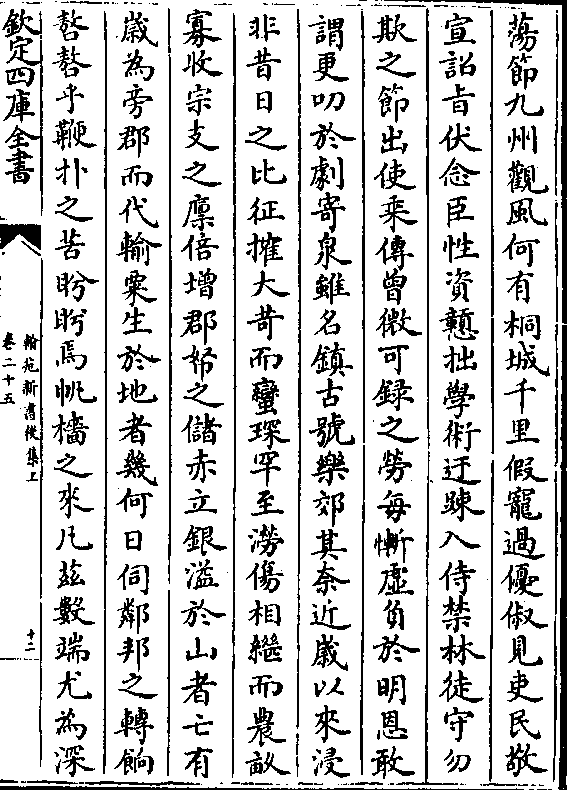 蕩節九州觀風何有桐城千里假寵過優俶見吏民敬
宣詔㫖伏念臣性資戆拙學術迂踈入侍禁林徒守勿
欺之節出使乘傳曾微可録之勞每慚虚負於明恩敢
謂更叨於劇寄泉雖名鎮古號樂郊其奈近歲以來浸
非昔日之比征搉大苛而蠻琛罕至澇傷相繼而農畝
寡收宗支之廪倍增郡帑之儲赤立銀溢於山者亡有
歲為旁郡而代輸粟生於地者幾何日伺鄰邦之轉餉
嗸嗸乎鞭扑之苦盻盻焉帆檣之來凡茲數端尤為深
欽定四庫全書
翰苑新書後集上
卷二十五
十二